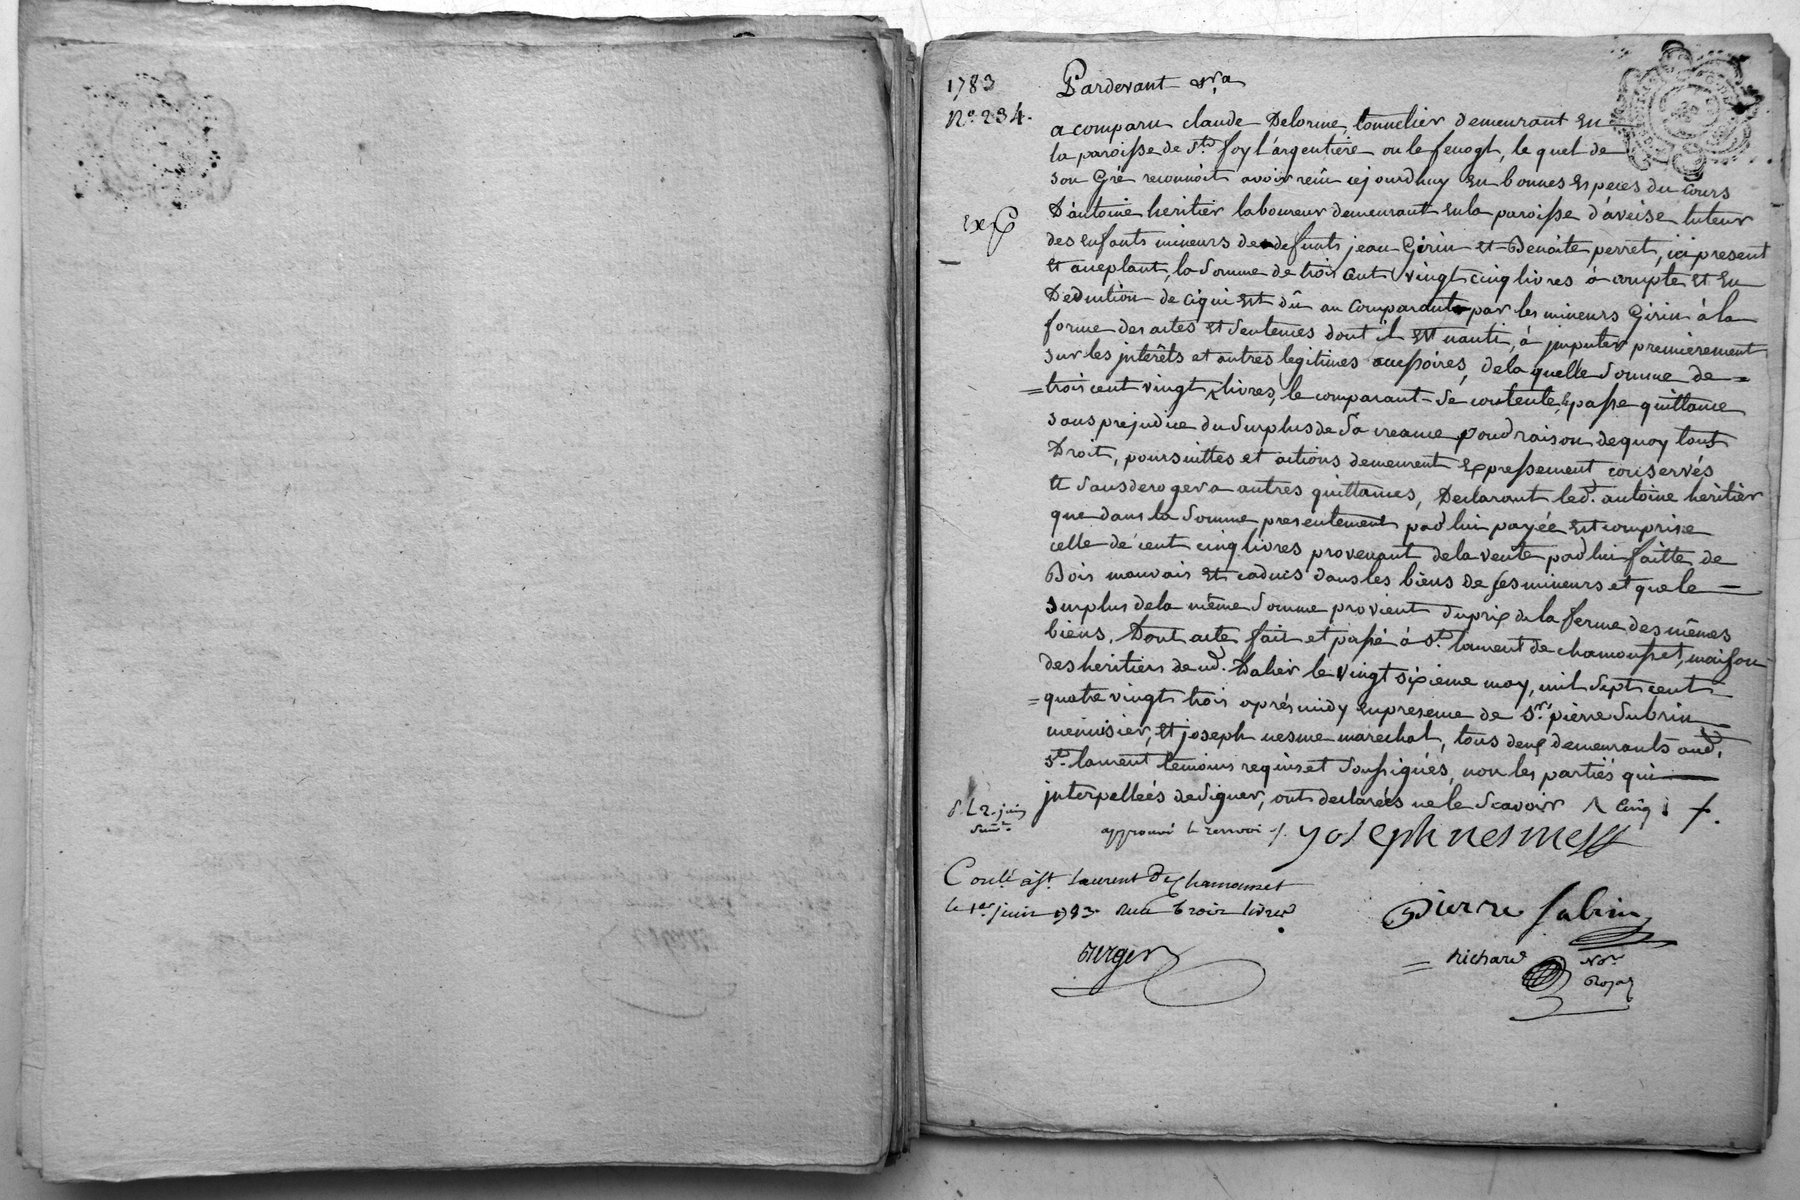 1783
N°. 234.
Pardevant &ra
a comparu claude Delorme, tonnelier demeurant en
la paroisse de Ste foy l'argentiere ou le fenogt, le quel de
son Gré reconnoit avoir reçû cejourdhuy en bonnes especes du cours
D'antoine heritier laboureur demeurant en la paroisse d'aveise tuteur
exp
des enfants mineurs de defunts jean Girin et Benoite perret, ici present
et acceptant, la somme de trois cent vingt cinq livres à compte et en
Deduction de ce qui est dû au comparant par les mineurs Girin à la
forme des actes et sentences dont il est nanti, à imputer premierement
sur les intérêts et autres legitimes accessoires, de la quelle somme de =
= trois cent vingt ⁁ livres, le comparant se contente, et passe quittance
sans prejudice du surplus de sa creance pour raison de quoy tout
Droit, poursuittes et actions demeurent expressement conservés
et sans deroger a autres quittances, Declarant led. antoine heritier
que dans la somme presentement par lui payée est comprise
celle de cent cinq livres provenant de la vente par lui faitte de
Bois mauvais et caducs dans les biens de ses mineurs et que le
surplus de la même somme provient du prix de la ferme des mêmes
biens. Dont acte fait et passé à St. laurent de chamousset, maison
des heritiers de md. Dalier le vingt sixieme may, mil sept cent
= quatre vingt trois après midy en presence de Sr. pierre Subrin
menuisier, et joseph nesme marechal, tous deux demeurants aud.
St. laurent temoins requis et soussignés, non les parties qui
interpellées de signer, ont declarées ne le scavoir ⁁ cinq
d. L 2. juin
approuvé le renvoi
joseph nesme
Conlé à St. Laurent De Chamousset
le 1er juin 1783. Reçu trois livres
pierre subrin
Berger
= Richard
Nore
Royal